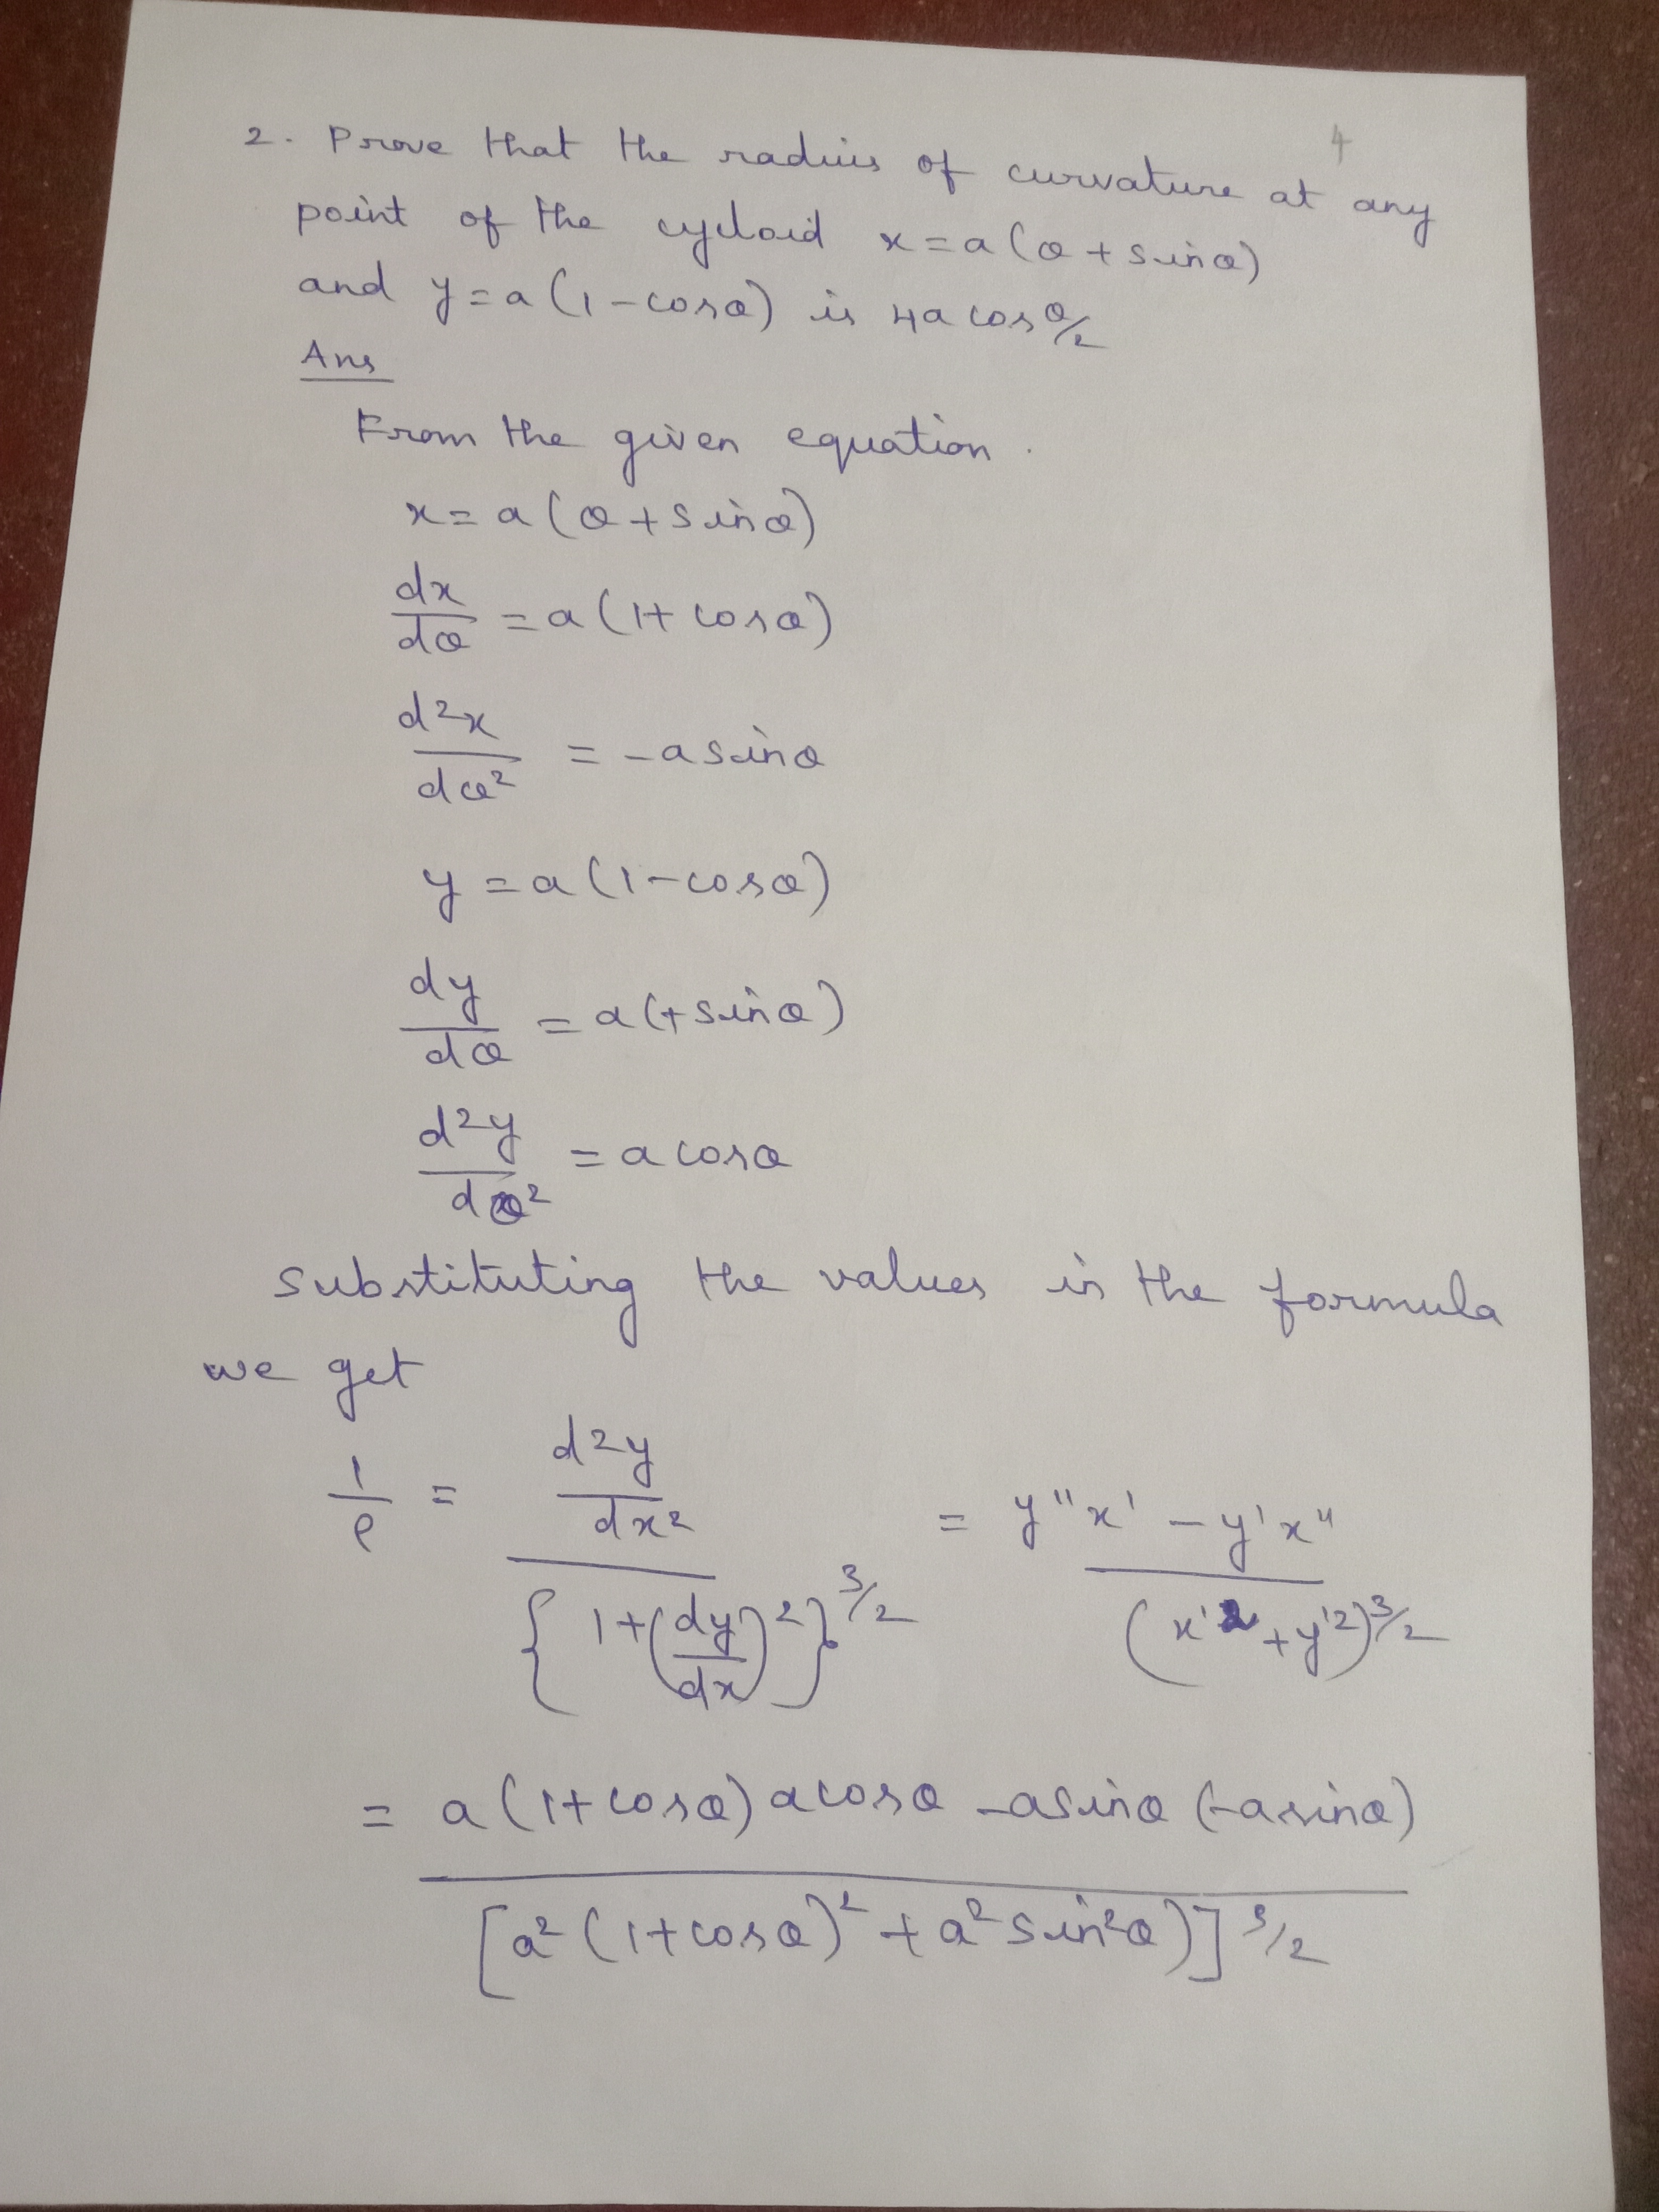 4
2. Prove that the radius of curvature at any
point of the cycloid x = a(θ + sinθ)
and y = a(1 - cosθ) is 4a cos θ/2
Ans
From the given equation.
x = a(θ + sinθ)
dx/dθ = a(1 + cosθ)
d²x/dθ² = -a sinθ
y = a(1 - cosθ)
dy/dθ = a(+sinθ)
d²y/dθ² = a cosθ
substituting the values in the formula
we get
1/ρ = d²y/dx² / {1 + (dy/dx)²}^3/2 = y''x' - y'x'' / (x'² + y'²)^3/2
= a(1 + cosθ) a cosθ - a sinθ (-a sinθ) / [a²(1 + cosθ)² + a² sin²θ)]^3/2